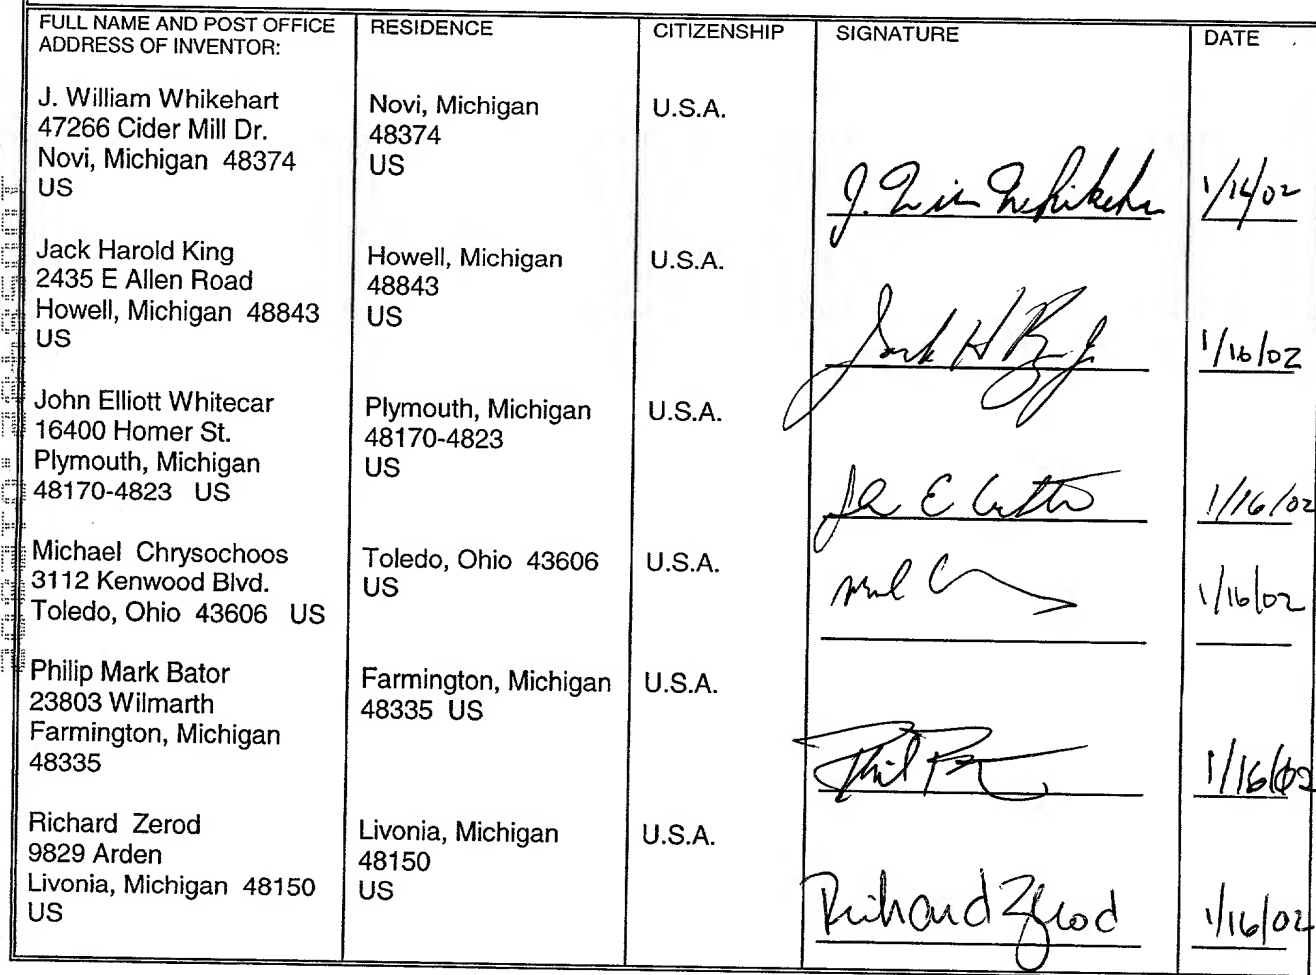 FULL NAME AND POST OFFICE
ADDRESS OF INVENTOR:
RESIDENCE
CITIZENSHIP
SIGNATURE
DATE
J. William Whikehart
47266 Cider Mill Dr.
Novi, Michigan 48374
US
Novi, Michigan
48374
US
U.S.A.
J. William Whikehart
1/14/02
Jack Harold King
2435 E Allen Road
Howell, Michigan 48843
US
Howell, Michigan
48843
US
U.S.A.
Jack H
1/16/02
John Elliott Whitecar
16400 Homer St.
Plymouth, Michigan
48170-4823 US
Plymouth, Michigan
48170-4823
US
U.S.A.
E
1/16/02
Michael Chrysochoos
3112 Kenwood Blvd.
Toledo, Ohio 43606 US
Toledo, Ohio 43606
US
U.S.A.
1/16/02
Philip Mark Bator
23803 Wilmarth
Farmington, Michigan
48335
Farmington, Michigan
48335 US
U.S.A.
Phil
1/16/02
Richard Zerod
9829 Arden
Livonia, Michigan 48150
US
Livonia, Michigan
48150
US
U.S.A.
Richard Zerod
1/16/02